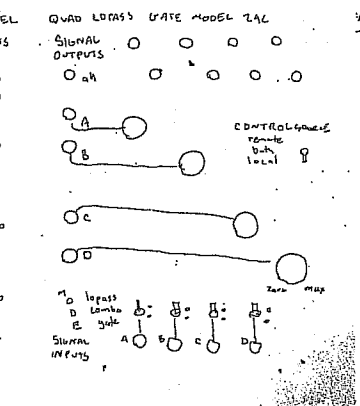 QUAD LOPASS GATE MODEL 292
SIGNAL
OUTPUTS
all
A
B
CONTROL SOURCE
remote
both
local
C
D
zero max
MODE
lopass
combo
gate
SIGNAL
INPUTS
A B C D